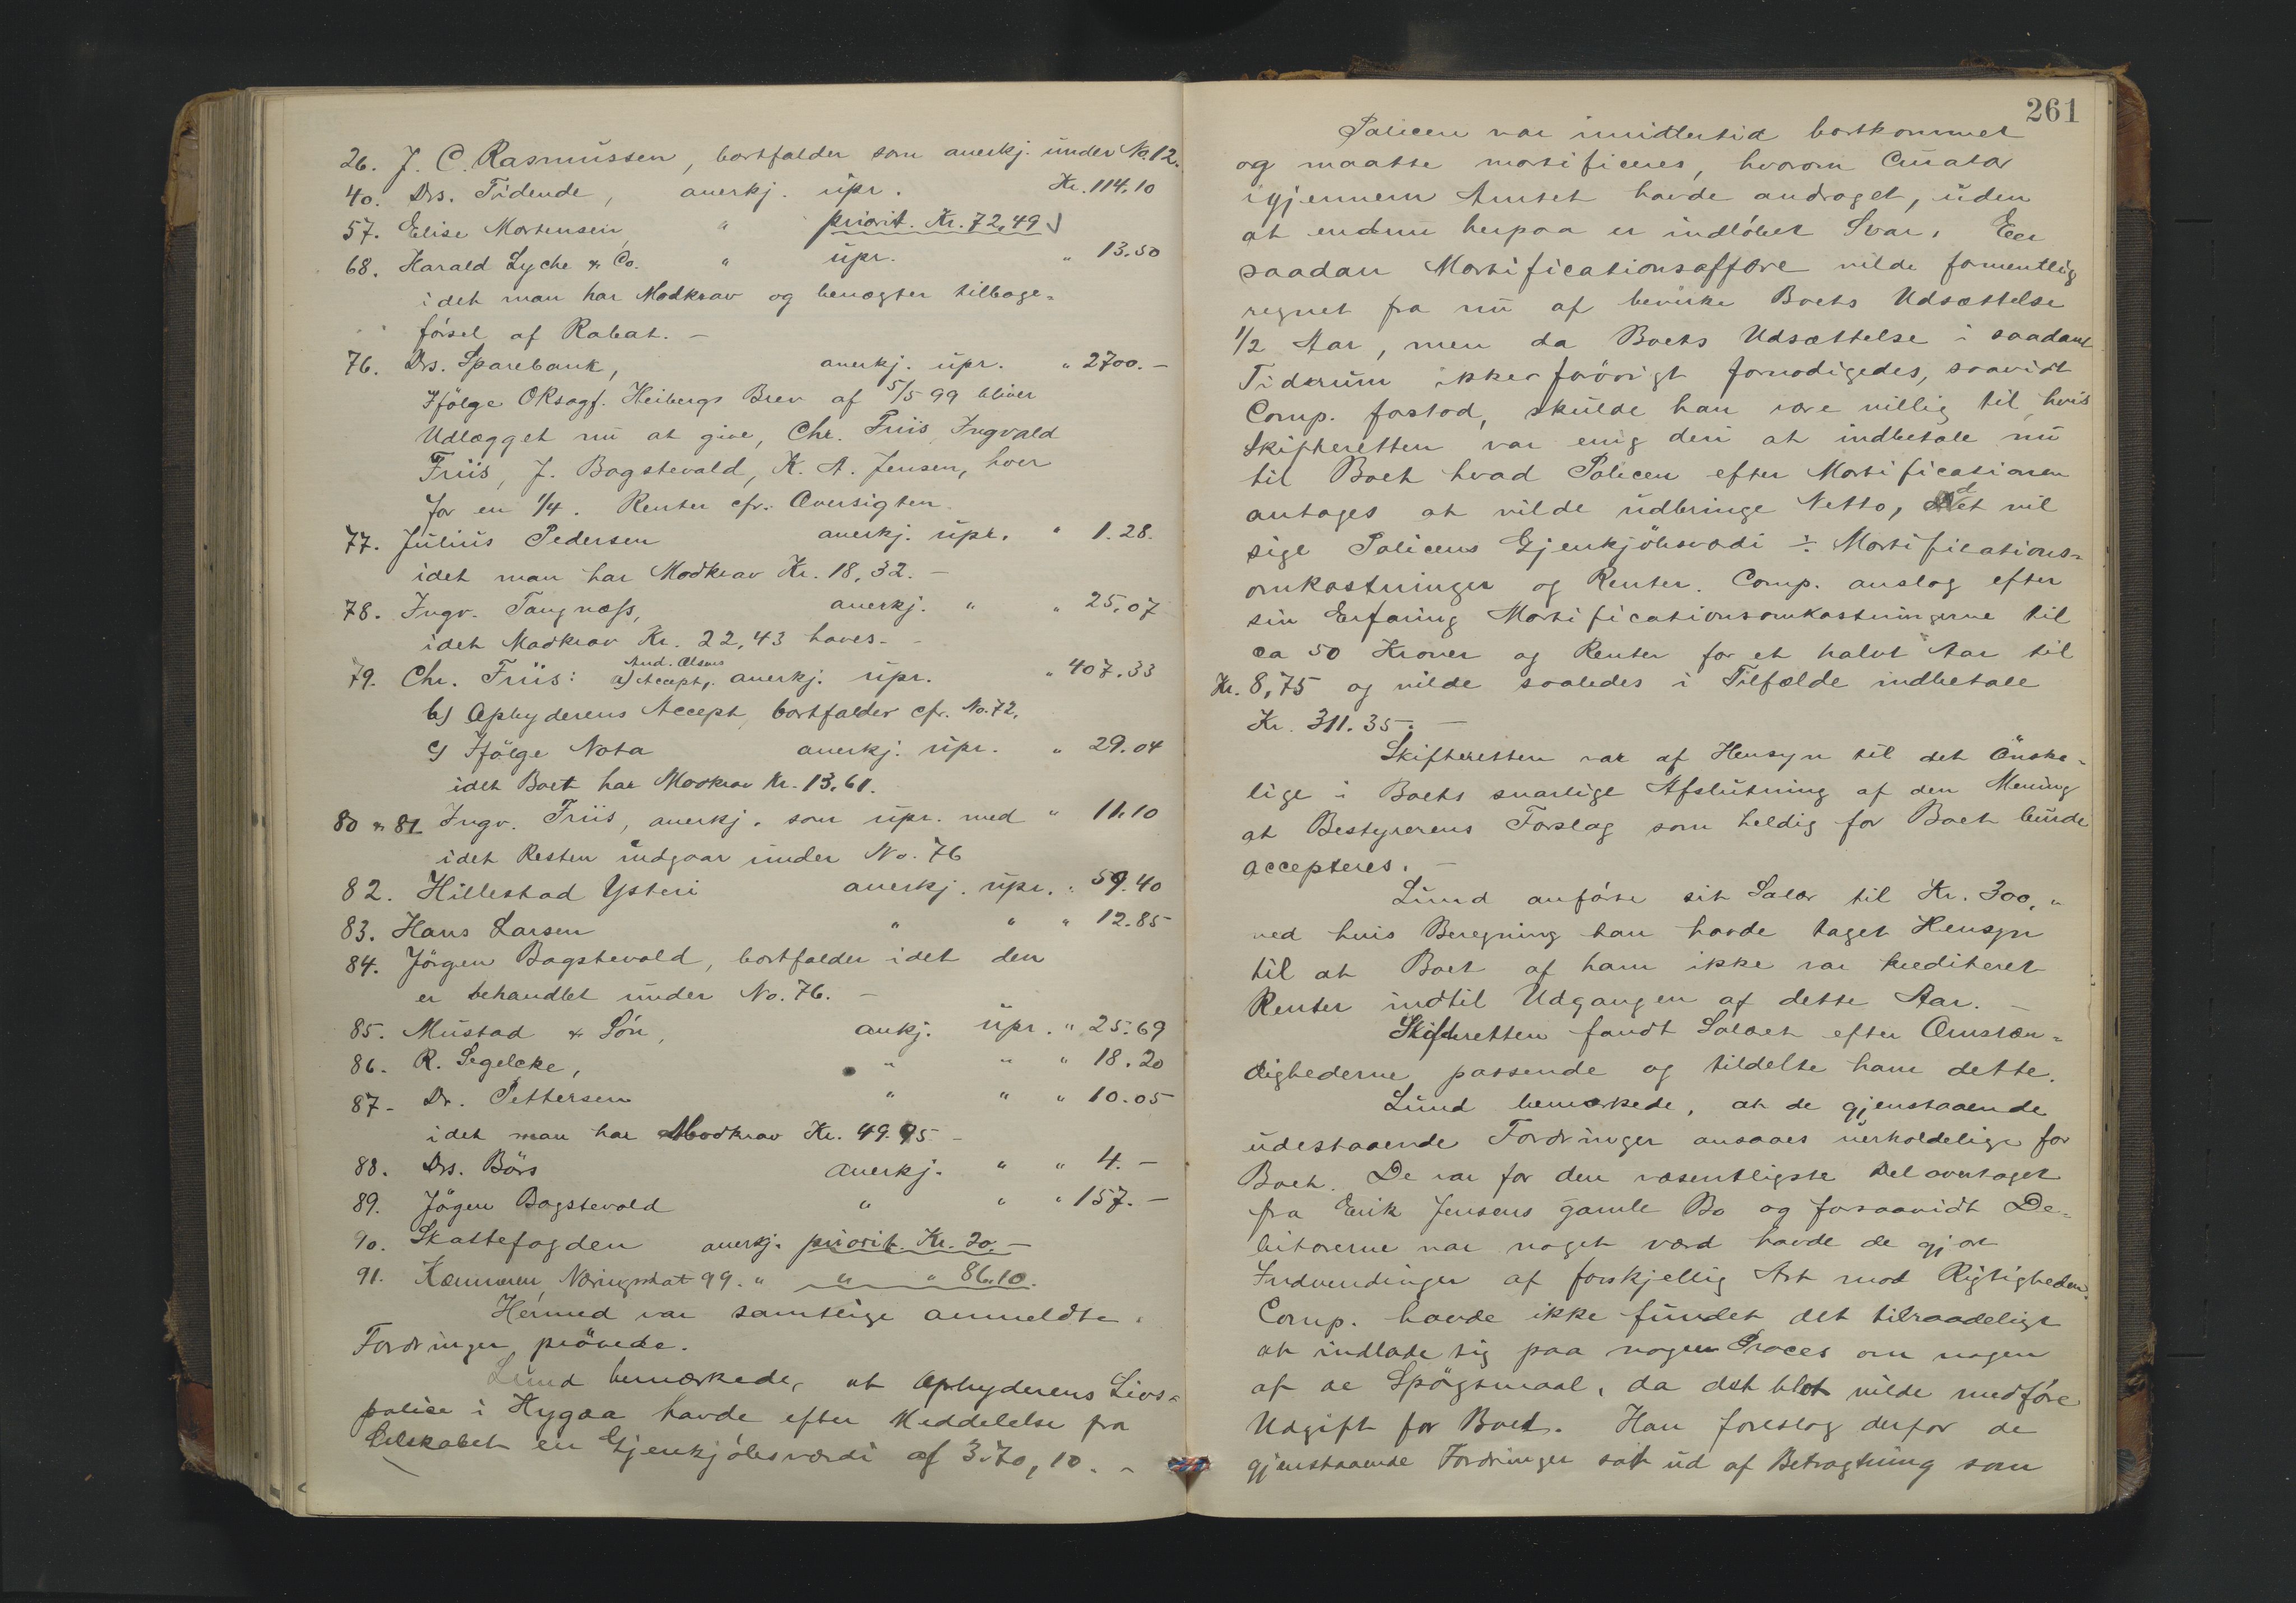 26. J. C. Rasmussen, bortfalder som anerkj. under No. 12.
40. Drs. Tidende, anerkj. upr. Kr. 114.10
57. Elise Mortensen, " priorit. Kr. 72,49
68. Harald Lyche & Co. " upr. " 13.50
idet man har Modkrav og benægter tilbage-
førsel af Rabat. –
76. Drs. Sparebank, anerkj. upr. " 2700. –
Ifölge ORsagf. Heibergs Brev af 5/5 99 bliver
Udlægget nu at give, Chr. Friis, Ingvald
Friis, J. Bagstevold, K. A. Jensen, hver
for en 1/4. Renter cfr. Oversigten
77. Julius Pedersen anerkj. upr. " 1.28.
idet man har Modkrav Kr. 18,32. –
78. Ingv. Tangnæss, anerkj. " " 25,07
idet Modkrav Kr. 22,43 haves. –
79. Chr. Friis: a) And. Olsens Accept, anerkj. upr. " 407.33
b) Opbyderens Accept, bortfalder cfr. No. 72.
c) Ifölge Nota anerkj. upr. " 29.04
idet Boet har Modkrav Kr. 13.61.
80 & 81 Ingv. Friis, anerkj. som upr. med " 11.10
idet Resten indgaar under No. 76
82. Hillestad Ysteri anerkj. upr. " 59.40
83. Hans Larsen " " " 12.85
84. Jörgen Bagstevold, bortfalder idet den
er behandlet under No. 76. –
85. Mustad & Sön, ankj. upr. " 25.69
86. R. Segelcke, " " " 18.20
87. Dr. Pettersen " " " 10.05
idet man har Modkrav Kr. 49.95 –
88. Drs. Börs anerkj. " " 4. –
89. Jögen Bagstevold " " " 157. –
90. Skattefogden anerkj. priorit. Kr. 20. –
91. Kæmneren, Næringsskat 99. " " " 86.10.
Hermed var samtlige anmeldte
Fordringer prövede.
Lund bemærkede, at Opbyderens Livs-
police i Hygæa havde efter Meddelelse fra
Selskabet en Gjenkjöbsværdi af 370,10. –
261
Policen var imidlertid bortkommet
og maatte mortificeres, hvorom Curator
igjennem Amtet havde andraget, uden
at endnu herpaa er indlöbet Svar. En
saadan Mortificationsaffære vilde formentlig
regnet fra nu af bevirke Boets Udsættelse
1/2 Aar, men da Boets Udsættelse i saadant
Tidsrum ikke forövrigt fornødigedes, saavidt
Comp. forstod, skulde han være villig til, hvis
Skifteretten var enig deri at indbetale nu
til Boet hvad Policen efter Mortificationen
antages at vilde udbringe Netto, det vil
sige Policens Gjenkjöbsværdi ÷ Mortifications-
omkostninger og Renter. Comp. anslog efter
sin Erfaring Mortificationsomkostningerne til
ca 50 Kroner og Renter for et halvt Aar til
Kr. 8,75 og vilde saaledes i Tilfælde indbetale
Kr. 311.35. –
Skifteretten var af Hensyn til det Önske-
lige i Boets snarlige Afslutning af den Mening
at Bestyrerens Forslag som heldig for Boet burde
accepteres. –
Lund anförte sit Salær til Kr. 300, "
ved hvis Beregning han havde taget Hensyn
til at Boet af ham ikke var krediteret
Renter indtil Udgangen af dette Aar. –
Skifteretten fandt Salæret efter Omstæn-
dighederne passende og tildelte ham dette.
Lund bemærkede, at de gjenstaaende
udestaaende Fordringer ansaaes uerholdelige for
Boet. De var for den væsentligste Del overtaget
fra Erik Jensens gamle Bo og forsaavidt De-
bitorerne var noget værd havde de gjort
Indvendinger af forskjellig Art mod Rigtigheden.
Comp. havde ikke fundet det tilraadeligt
at indlade sig paa nogen Proces om nogen
af de Spörgsmaal, da det blot vilde medföre
Udgift for Boet. Han foreslog derfor de
gjenstaaende Fordringer sat ud af Betragtning som